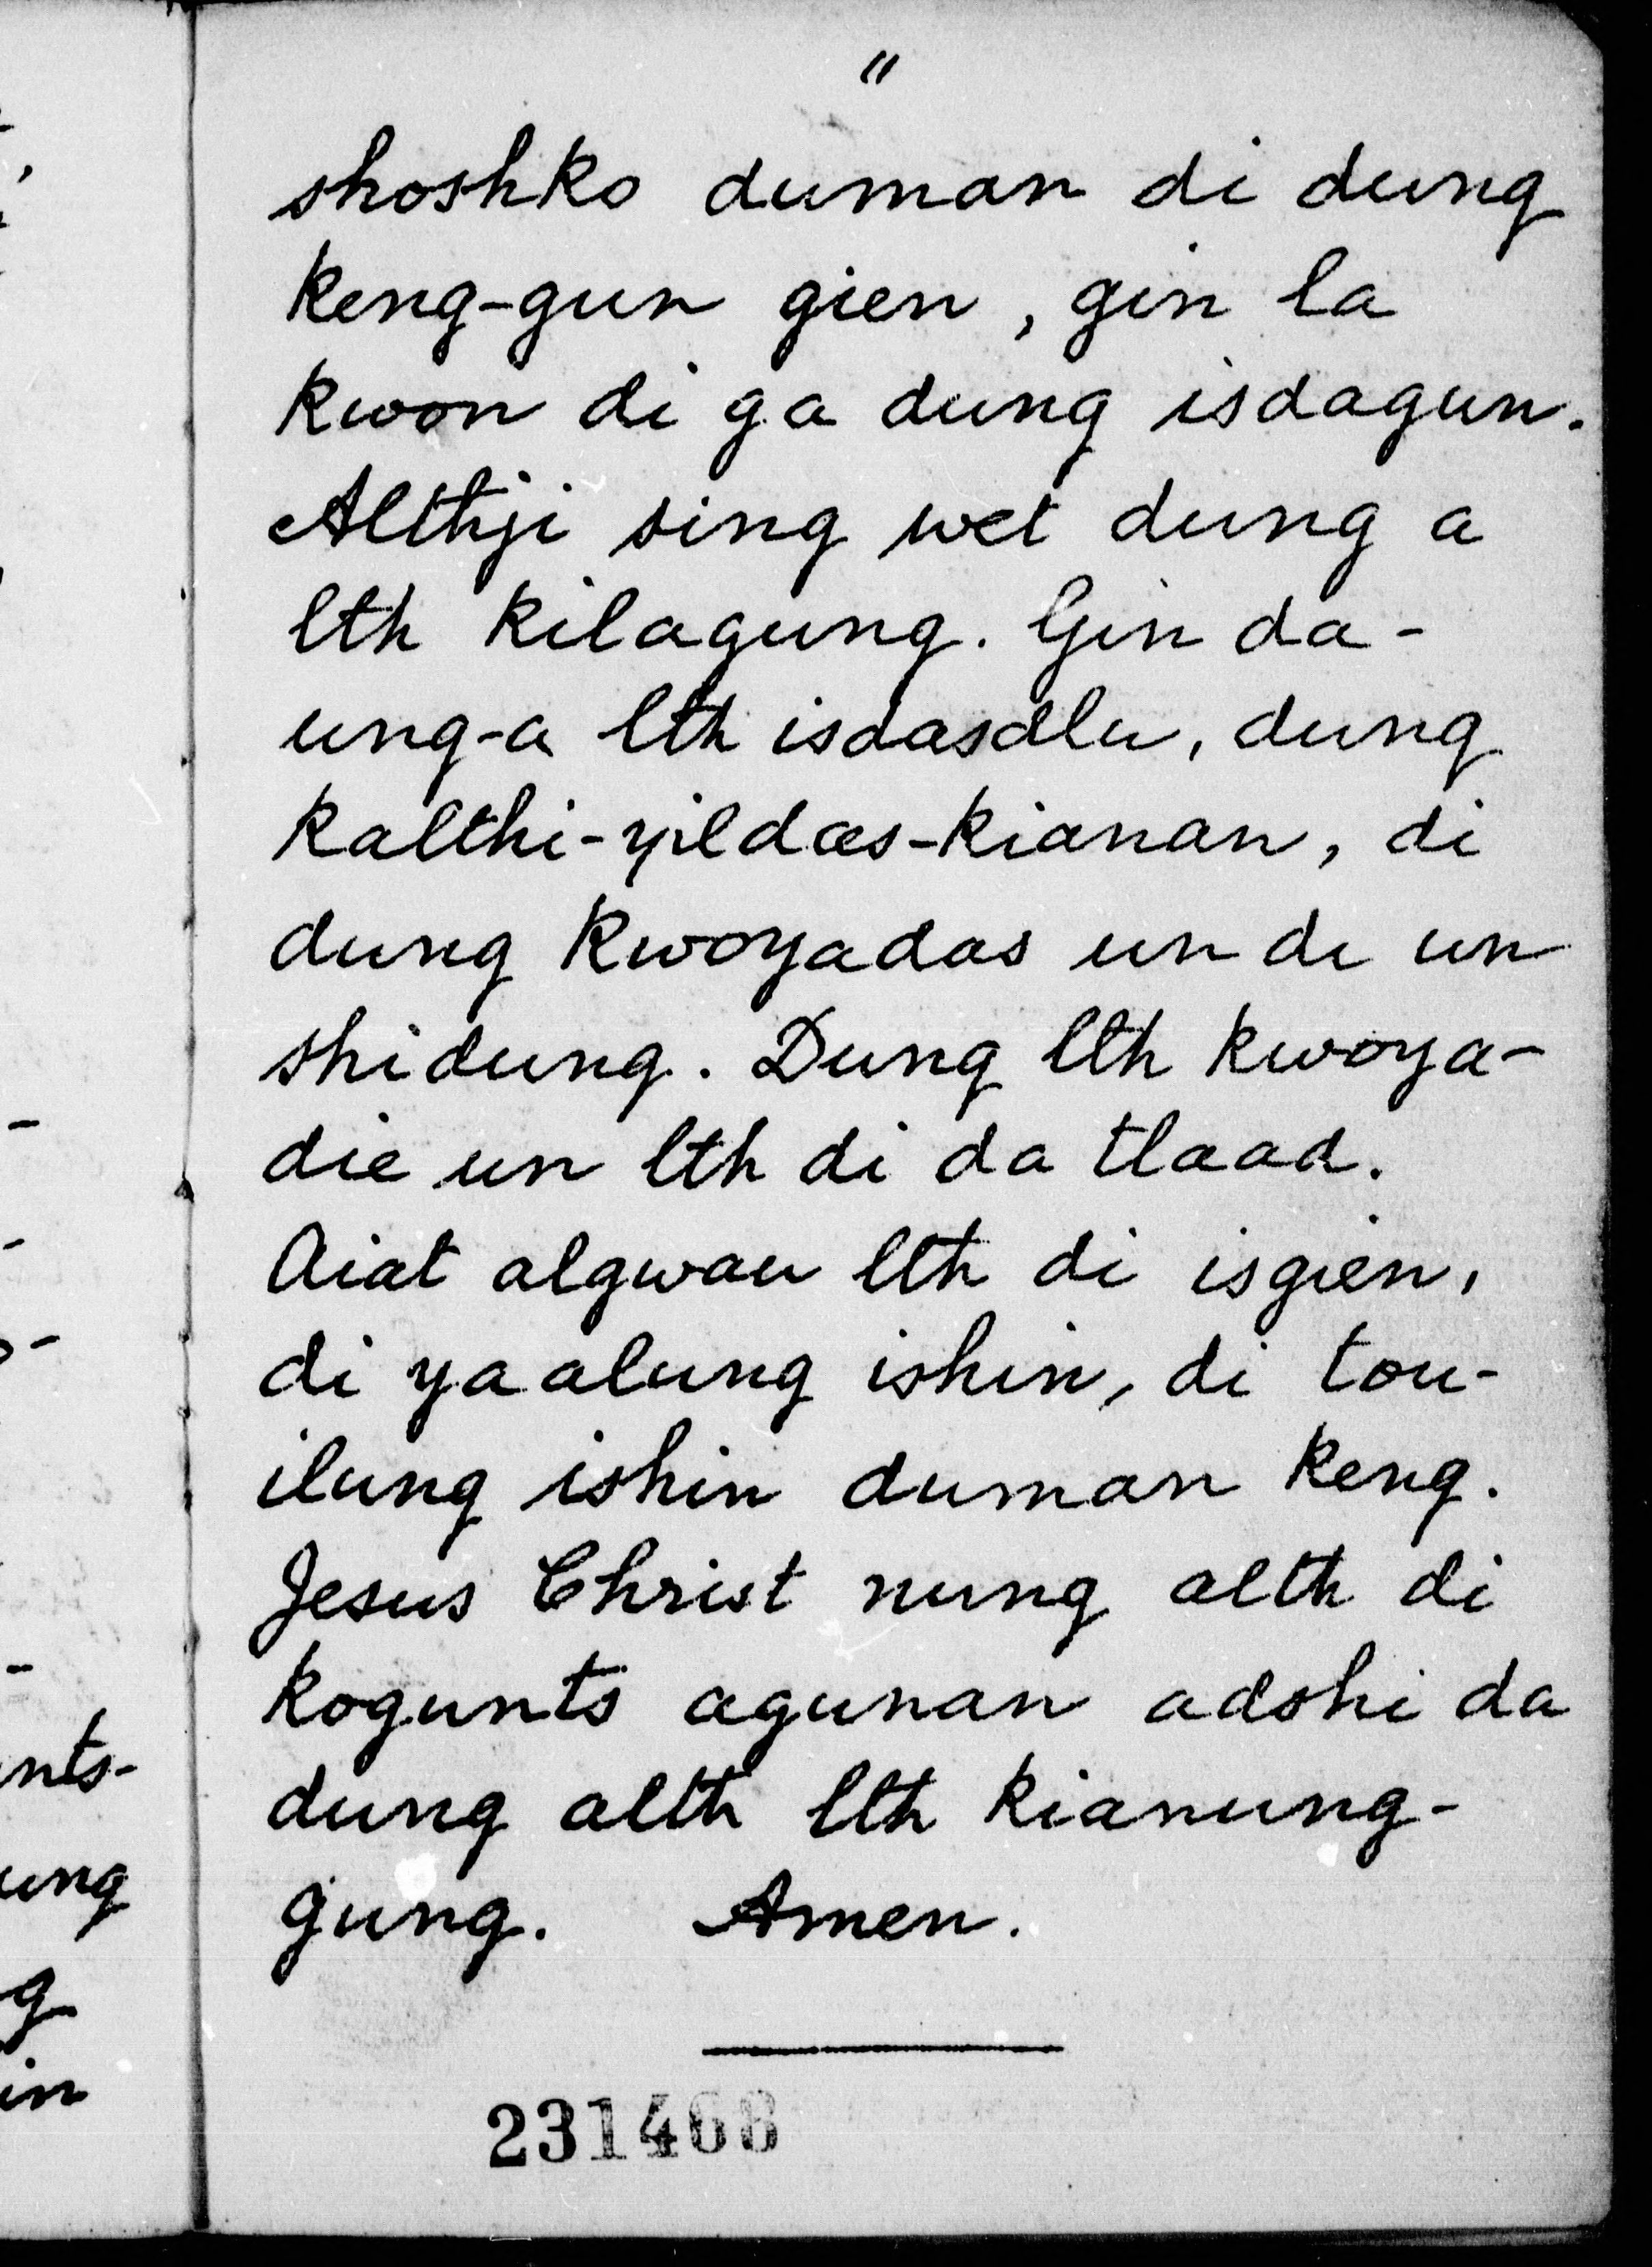 11
shoshko duman di dung
keng-gun gien, gin la
kwon di ga dung isdagun.
Althji sing wet dung a
lth kilagung. Gin da-
ung-a lth isdasdlu, dung
kalthi-yildas-kianan, di
dung kwoyadas un di un
shidung. Dung lth kwoya-
die un lth di da tlaad.
Aiat algwau lth di isgien,
di yaalung ishin, di tou-
ilung ishin duman keng.
Jesus Christ nung alth di
kogunts agunan adshi da
dung alth lth kianung-
gung. Amen.
231468
nts-
ung
g
in